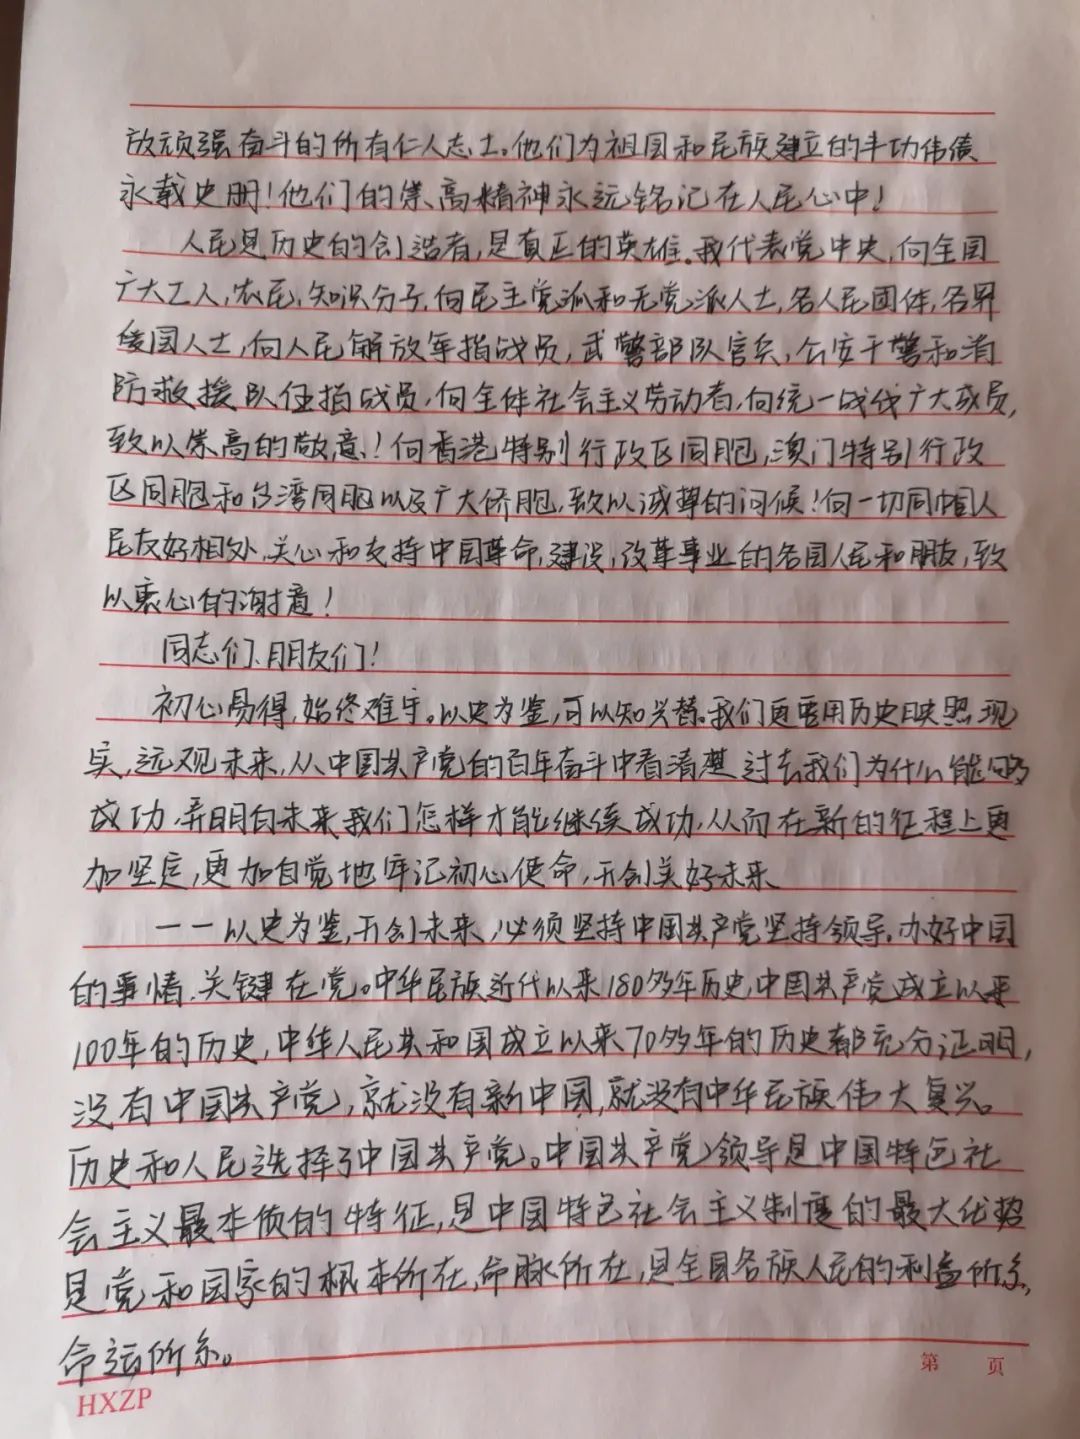 放顽强奋斗的所有仁人志士。他们为祖国和民族建立的丰功伟绩
永载史册!他们的崇高精神永远铭记在人民心中!
人民是历史的创造者,是真正的英雄。我代表党中央,向全国
广大工人,农民,知识分子,向民主党派和无党派人士,各人民团体,各界
爱国人士,向人民解放军指战员,武警部队官兵,公安干警和消
防救援队伍指战员,向全体社会主义劳动者,向统一战线广大成员,
致以崇高的敬意!向香港特别行政区同胞,澳门特别行政
区同胞和台湾同胞以及广大侨胞,致以诚挚的问候!向一切同中国人
民友好相处、关心和支持中国革命,建设,改革事业的各国人民和朋友,致
以衷心的谢意!
同志们、朋友们!
初心易得,始终难守。以史为鉴,可以知兴替。我们更需用历史映照现
实,远观未来,从中国共产党的百年奋斗中看清楚过去我们为什么能够
成功,弄明白未来我们怎样才能继续成功,从而在新的征程上更
加坚定,更加自觉地牢记初心使命,开创美好未来
一一以史为鉴,开创未来,必须坚持中国共产党坚持领导。办好中国
的事情,关键在党。中华民族近代以来180多年历史,中国共产党成立以来
100年的历史,中华人民共和国成立以来70多年的历史都充分证明,
没有中国共产党,就没有新中国,就没有中华民族伟大复兴。
历史和人民选择了中国共产党。中国共产党领导是中国特色社
会主义最本质的特征,是中国特色社会主义制度的最大优势
是党和国家的根本所在,命脉所在,是全国各族人民的利益所系,
命运所系。
第 页
HXZP